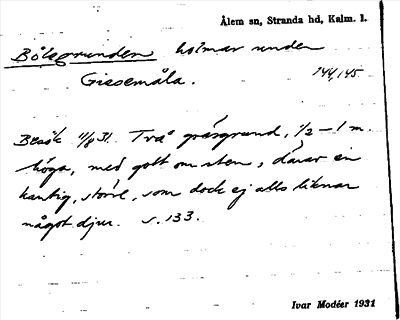 Ålem sn, Stranda hd, Kalm. l.
Bölsgrunden holmar under
Gissemåla. 144, 145
Besök 11/8 31. Två gräsgrund, 1/2 – 1 m.
höga, med gott om sten, därav en
kantig, större, som dock ej alls liknar
något djur. s. 133.
Ivar Modéer 1931